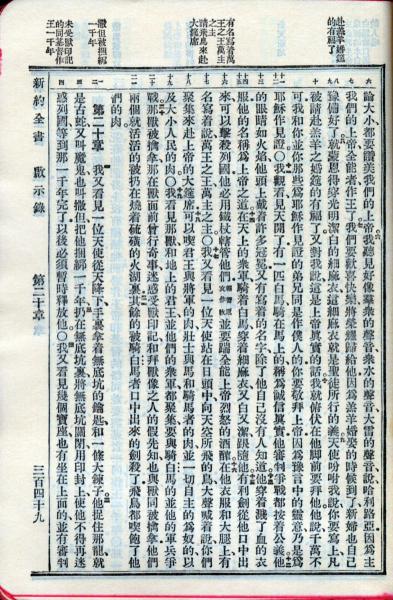 赴羔羊婚筵
的有福了
有名寫着萬
王之王萬主
之主
請飛鳥來赴
大筵席
撒但被捆綁
一千年
未受獸印記
的同基督作
王一千年
論大小都要讚美我們的上帝我聽見好像羣衆的聲音衆水的聲音大雷的聲音說哈利路亞因爲主
我們的上帝全能者作王了我們要歡喜快樂將榮耀歸給他因爲羔羊婚娶的時候到了新婦也自己
豫備好了就蒙恩得穿光明潔白的細麻衣這細麻衣就是聖徒所行的義天使吩咐我說你要寫上凡
被請赴羔羊之婚筵的有福了又對我說這是上帝眞實的話我就俯伏在他脚前要拜他他說千萬不
可我和你並你那些爲耶穌作見證的弟兄同是作僕人的你要敬拜上帝因爲豫言中的靈意乃是爲
耶穌作見證○我觀看見天開了有一匹白馬騎在馬上的稱爲誠信眞實他審判爭戰都按着公義他
的眼睛如火焰他頭上戴着許多冠冕又有寫着的名字除了他自己沒有人知道他穿着濺了血的衣
服他的名稱爲上帝之道在天上的衆軍騎着白馬穿着細麻衣又白又潔跟隨他有利劍從他口中出
來可以擊殺列國他必用鐵杖轄管他們轄管原文作牧並要踹全能上帝烈怒的酒醡在他衣服和大腿上有
名寫着說萬王之王萬主之主○我又看見一位天使站在日頭中向天空所飛的鳥大聲喊着說你們
聚集來赴上帝的大筵席可以喫君王與將軍的肉壯士與馬和騎馬者的肉並一切自主的爲奴的以
及大小人民的肉○我看見那獸和地上的君王並他們的衆軍都聚集要與騎白馬的並他的軍兵爭
戰那獸被擒拿那在獸面前曾行奇事迷惑受獸印記和拜獸像之人的假先知也與獸同被擒拿他們
兩個就活活的被扔在燒着硫磺的火湖裏其餘的被騎白馬者口中出來的劍殺了飛鳥都喫飽了他
們的肉
第二十章 我又看見一位天使從天降下手裏拿着無底坑的鑰匙和一條大鍊子他捉住那龍就
是古蛇又叫魔鬼也叫撒但把他捆綁一千年扔在無底坑裏將無底坑關閉用印封上使他不得再迷
惑列國等到那一千年完了以後必須暫時釋放他○我又看見幾個寶座也有坐在上面的並有審判
新約全書 啟示錄 第二十章 三百四十九